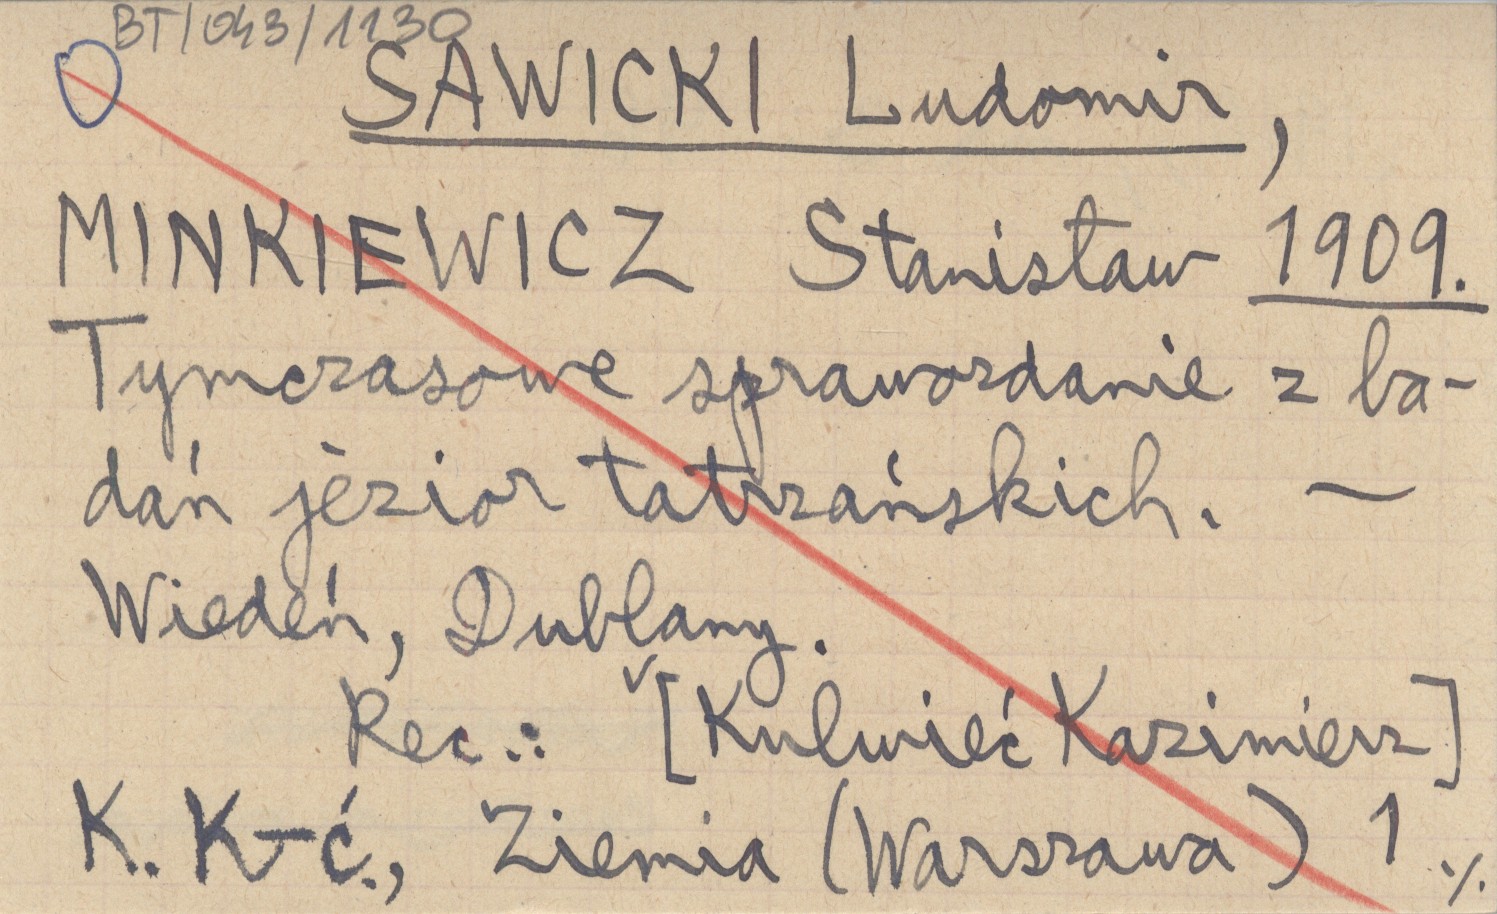 BT/043/1130
SAWICKI Ludomir,
MINKIEWICZ Stanisław 1909.
Tymczasowe sprawozdanie z ba-
dań jezior tatrzańskich. —
Wiedeń, Dublany.
Rec.: [Kulwieć Kazimierz]
K. K-ć., Ziemia (Warszawa) 1 ./.